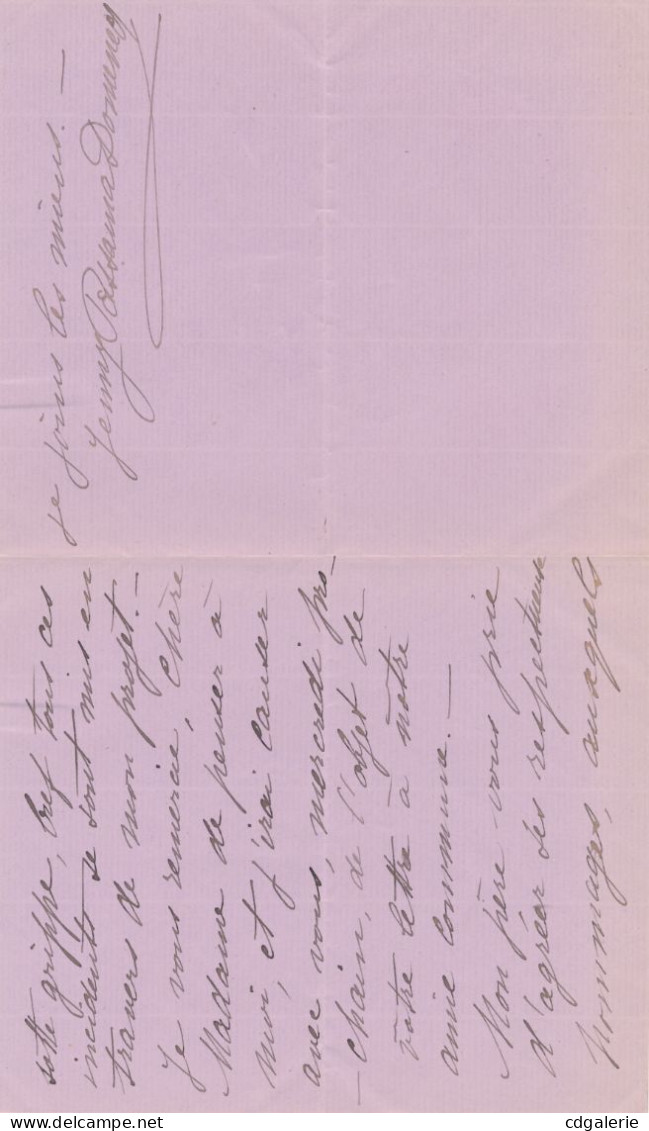 sotte grippe, bref tous ces
incidents se sont mis en
travers de mon projet. —
Je vous remercie, Chère
Madame de penser à
moi, et j'irai causer
avec vous, mercredi pro-
-chain, de l'objet de
votre lettre à notre
amie commune. —
Mon père vous prie
d'agréer ses respectueux
hommages, auxquels
je joins les miens. —
Jenny
cdgalerie